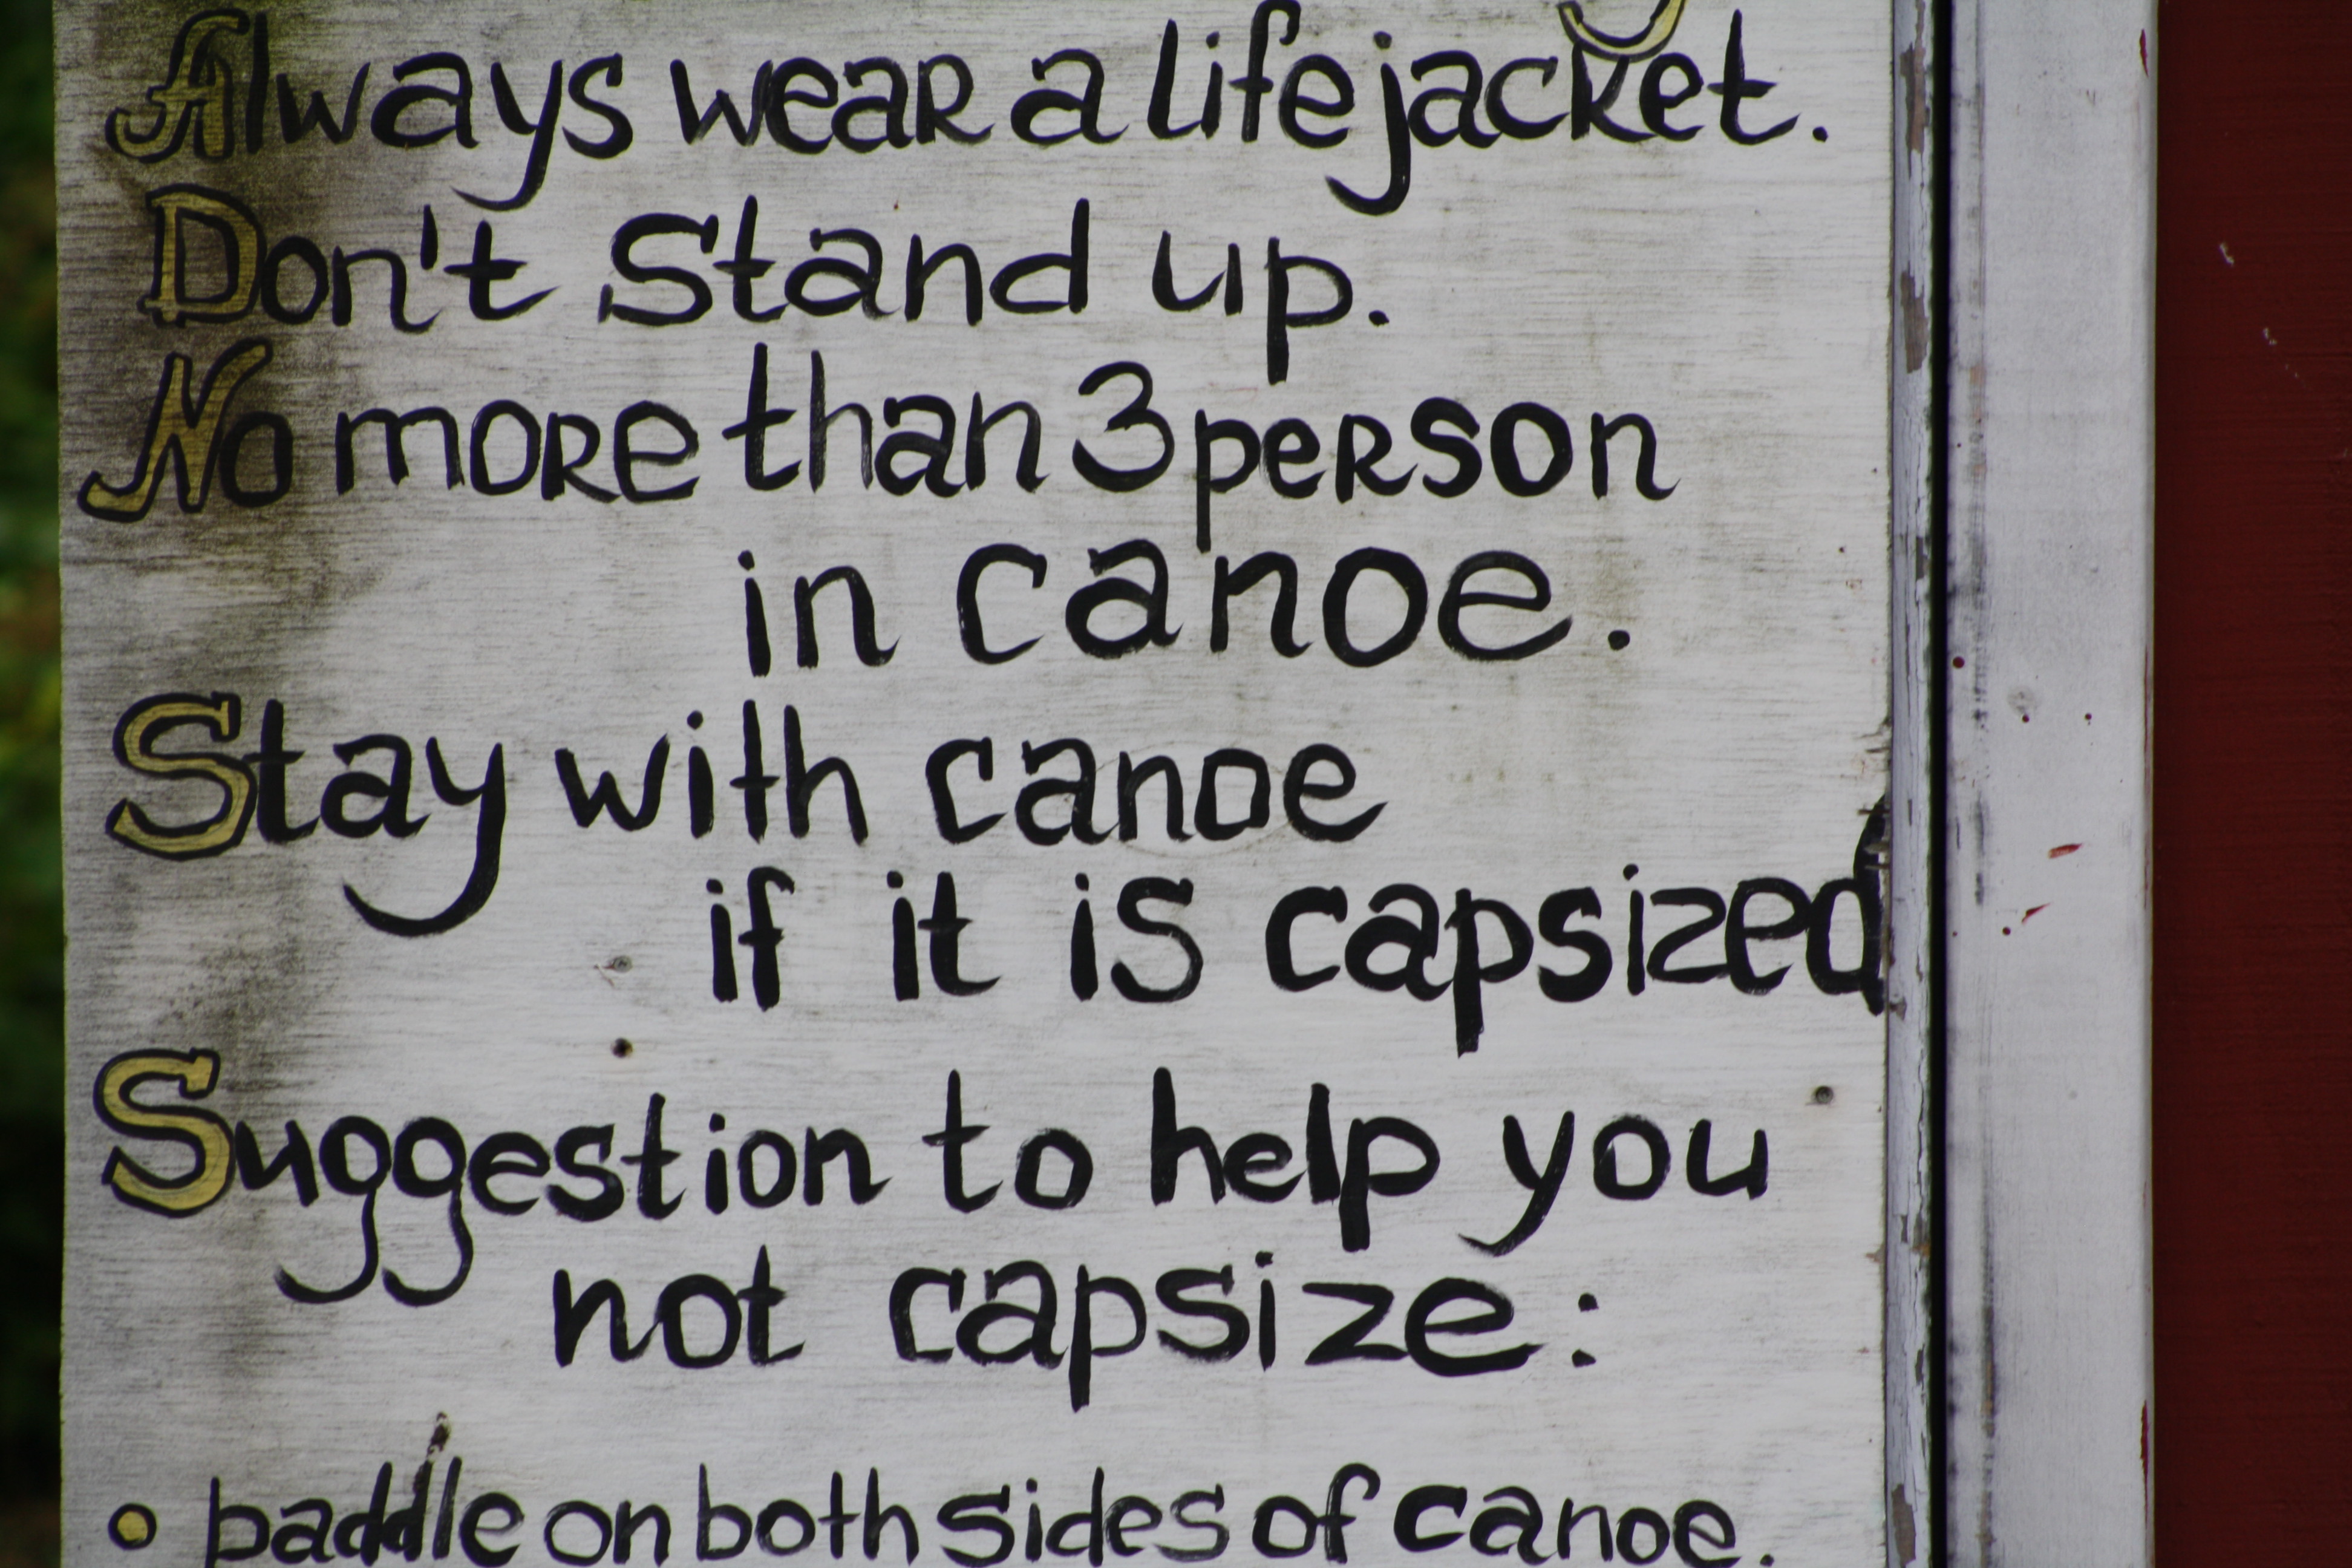 Always wear a life jacket.
Don't Stand up.
No more than 3 person
in canoe.
Stay with canoe
if it is capsized
Suggestion to help you
not capsize:
• paddle on both sides of canoe.